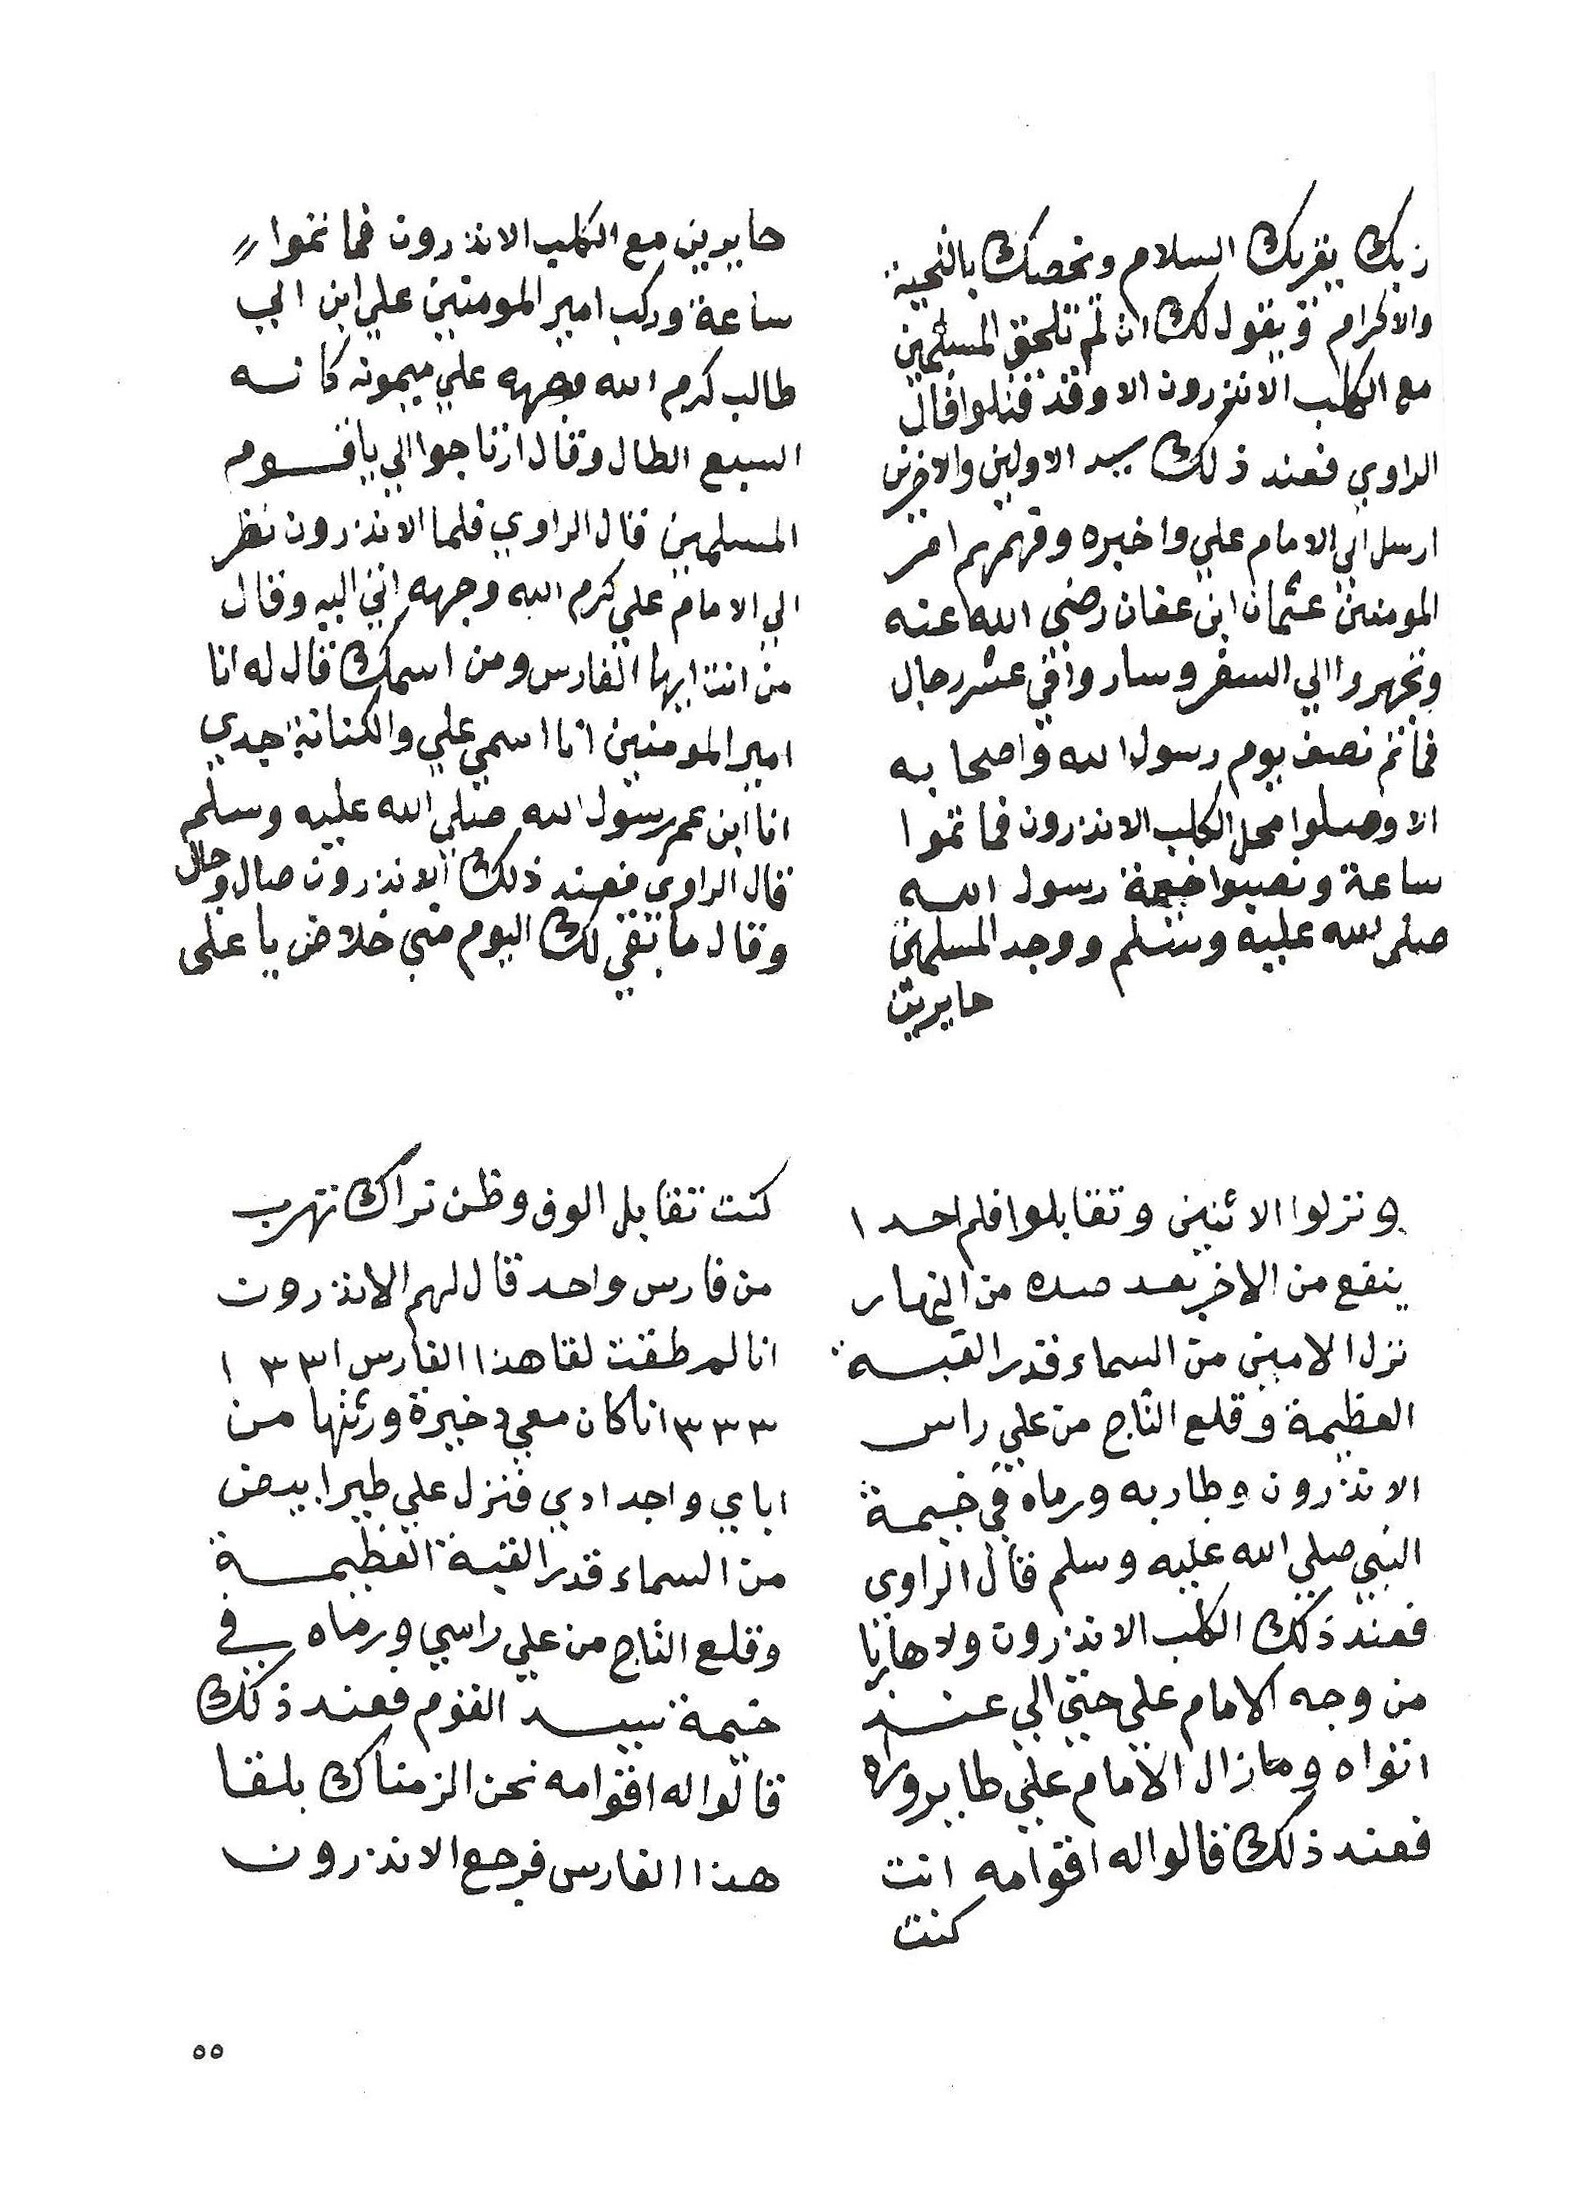 ربك يقريك السلام ويخصك بالتحية
والاكرام ويقول لك ان لم تلحق المسلمين
مع الكلب الاندرون الا وقد قتلوا قال
الراوي فعند ذلك سيد الاولين والاخرين
ارسل الي الامام علي واخبره وفهمهم امر
المومنين عثمان ابن عفان رضي الله عنه
وتجهروا الي السفر وسار وافي عشر رجال
فما تم نصف يوم رسول الله واصحابه
الا وصلوا محل الكلب الاندرون فما تموا
ساعة ونصبوا خيمة رسول الله
صلي الله عليه وسلم ووجد المسلمين
حايرين
حايرين مع الكلب الاندرون فما تموا
ساعة وركب امير المومنين علي ابن ابي
طالب كرم الله وجهه علي ميمونه كانه
السبع الطال وقال ارتاجوا الي ياقوم
المسلمين قال الراوي فلما الاندرون نظر
الي الامام علي كرم الله وجهه اتي اليه وقال
من انت ايها الفارس ومن اسمك قال له انا
امير المومنين انا اسمي علي والكنانة جدي
انا ابن عم رسول الله صلي الله عليه وسلم
قال الراوي فعند ذلك الاندرون صال وجال
وقال ما بقي لك اليوم مني خلاص يا علي
ونزلوا الاثنين وتقابلوا فلم احدا
ينفع من الاخر بعد صده من النهار
نزل الامين من السماء قدر القبة
العظيمة وقلع التاج من علي راس
الاندرون وطار به ورماه في خيمة
النبي صلي الله عليه وسلم قال الراوي
فعند ذلك الكلب الاندرون ولا هاربا
من وجه الامام علي حتي الي عند
اقواه ومازال الامام علي طايروراه
فعند ذلك قالوا له اقوامه انت
كنت
كنت تقابل الوف وظن نراك تهرب
من فارس واحد قال لهم الاندرون
انا لم طقت لقا هذا الفارس ١٣٣١
٣٣٣ انا كان معي دخيرة ورثتها من
اباي واجدادي فنزل علي طيرا بيض
من السماء قدر القبة العظيمة
وقلع التاج من علي راسي ورماه في
خيمة سيد القوم فعند ذلك
قالوا له اقوامه نحن الزمناك بلقا
هذا الفارس فرجع الاندرون
٥٥